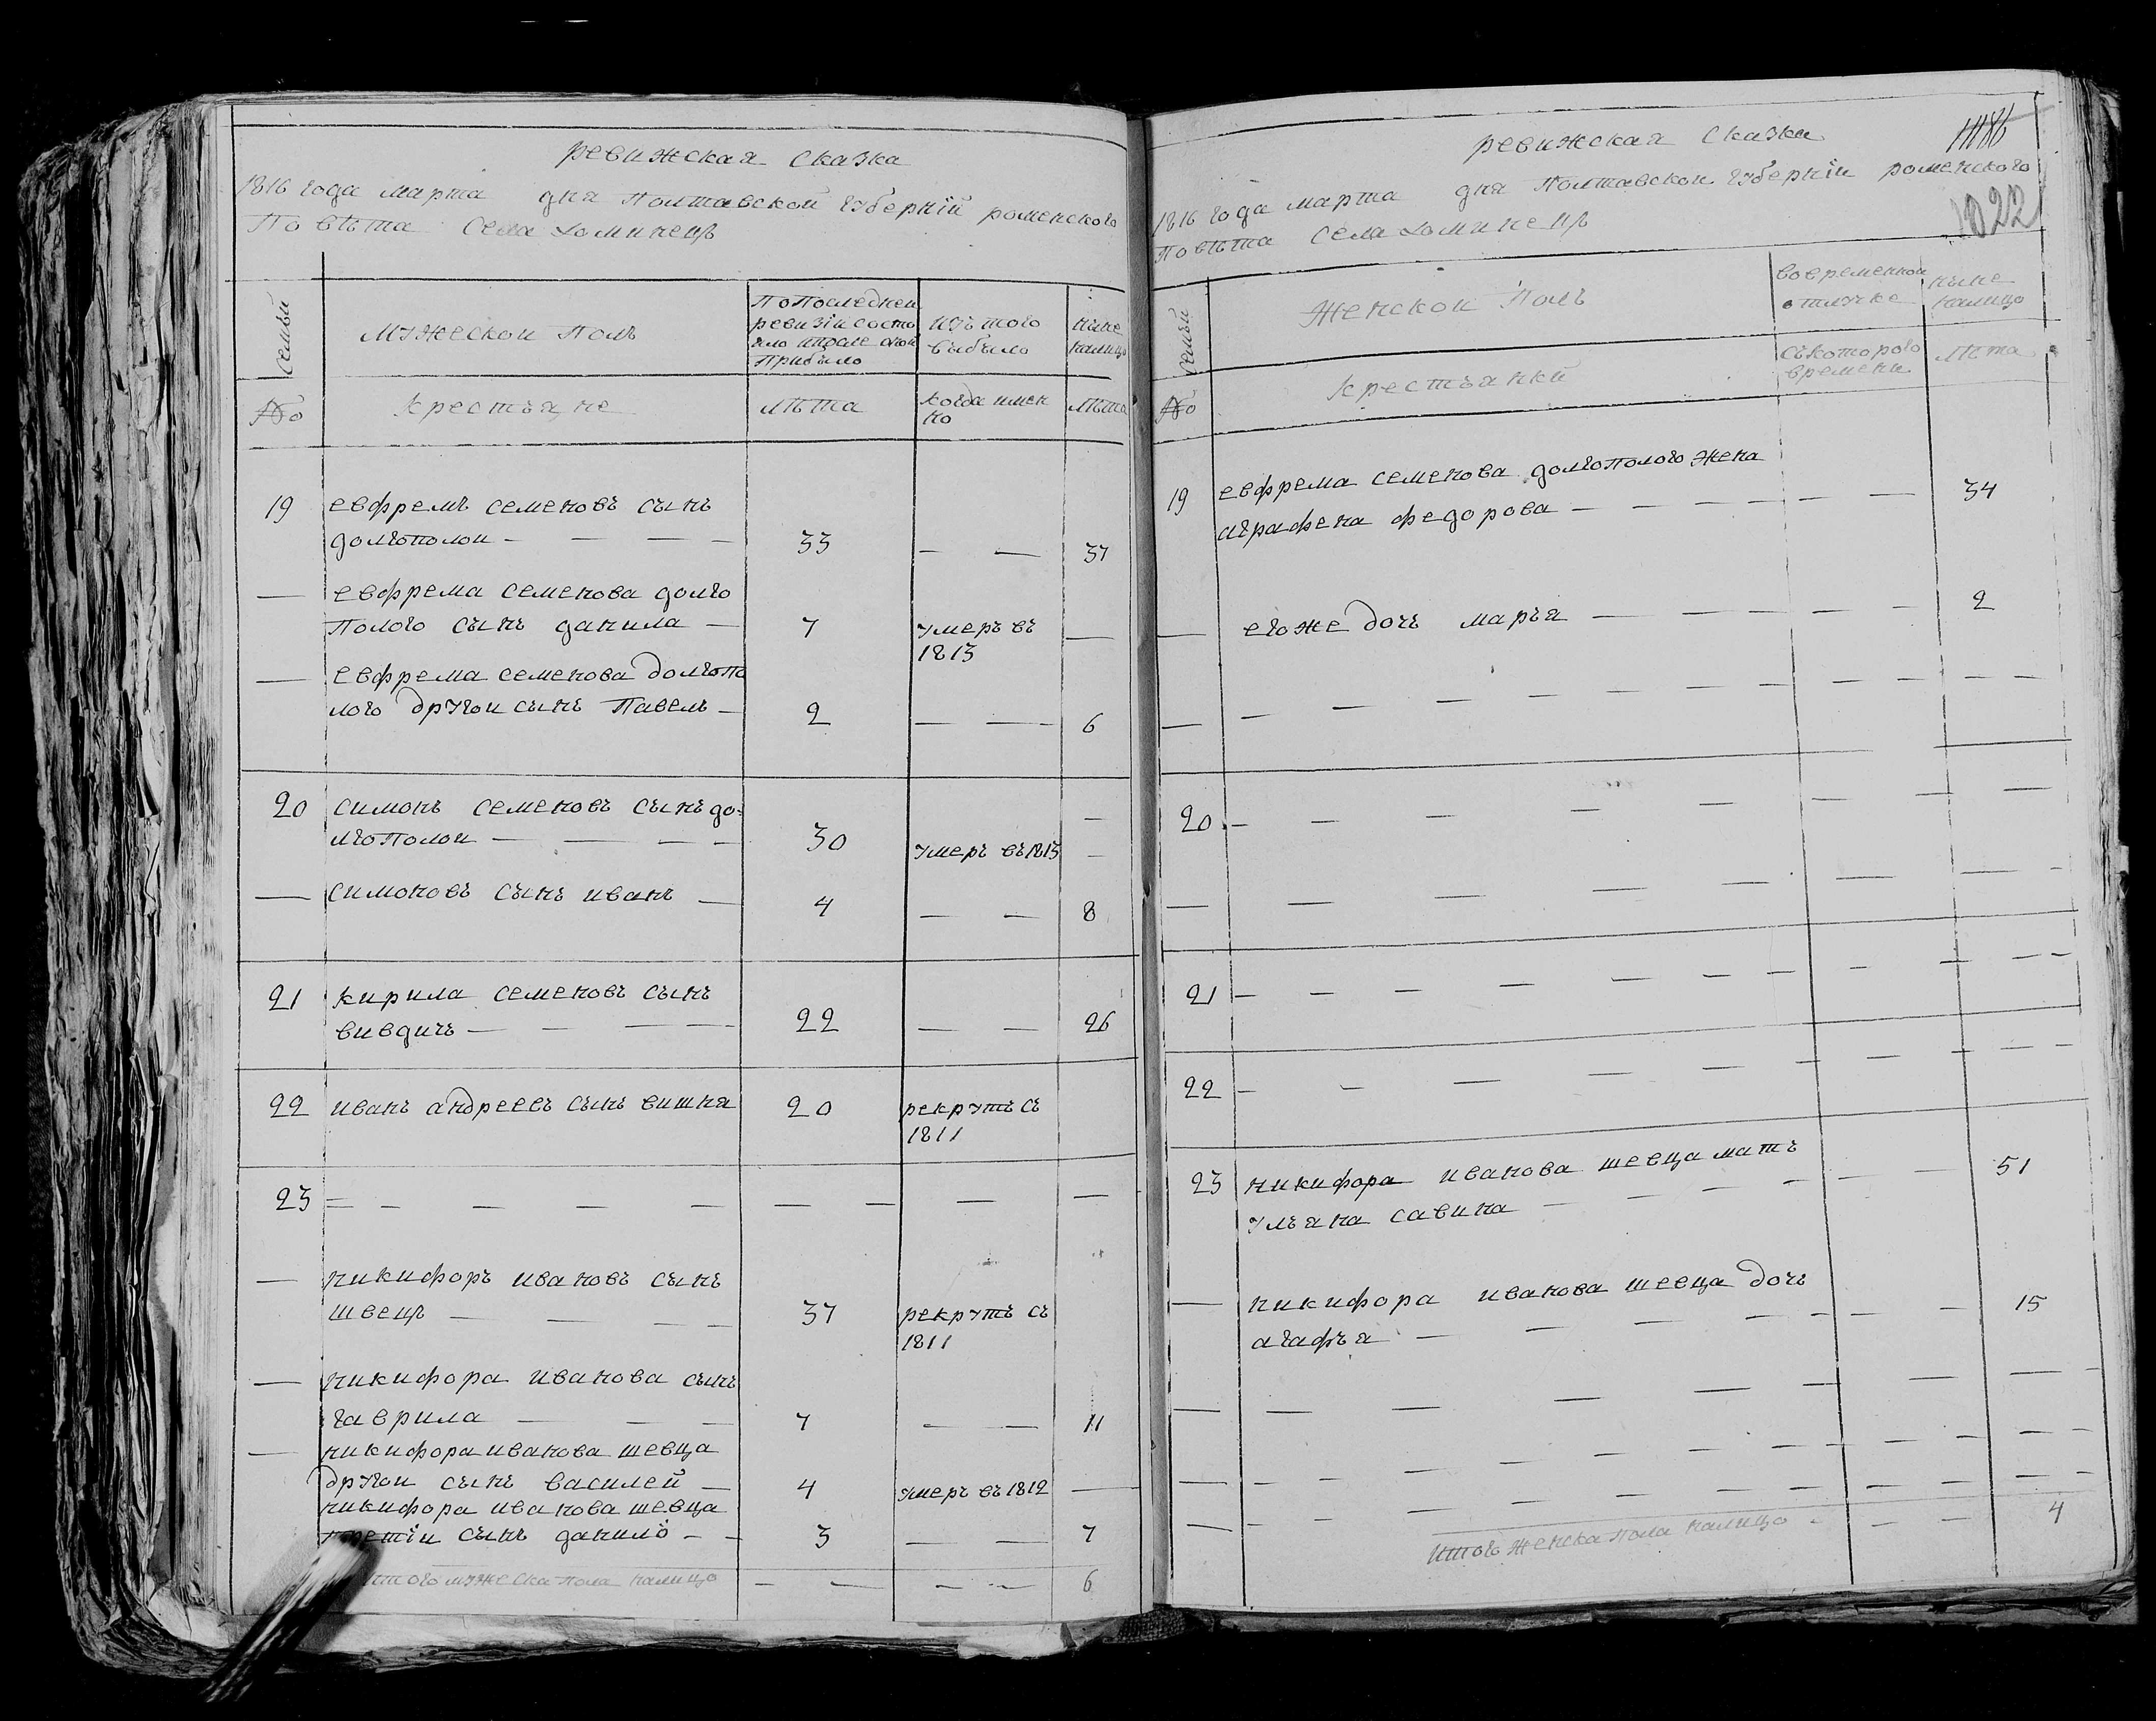 ревижская сказка
1816 года марта дня Полтавской губерній роменского
Повѣта села Хоминецъ
семьи
мужеской Полъ
По Последнеи
ревизіи состо
яло ипосле онои
Прибыло
изъ того
выбыло
ныне
налицо
№
крестьяне
лѣта
когда имен
но
лѣта
19 евфремъ семеновъ сынъ
долгополои — — — — 33 — — 37
— евфрема семенова долго
Полого сынъ данила — 7 умеръ въ —
1813
— евфрема семенова долгопо
лого другои сынъ Павелъ — 2 — — 6
20 симонъ семеновъ сынъ до-
лгополои — — — — 30 умеръ въ 1813 —
— симоновъ сынъ иванъ — 4 — — 8
21 кирила семеновъ сынъ
вивдичъ — — — — 22 — — 26
22 иванъ андреевъ сынъ вишня 20 рекрутъ съ
1811
23 — — — — — — — — —
— никифоръ ивановъ сынъ
швецъ — — — — 37 рекрутъ съ
1811
— никифора иванова сынъ
гаврила — — — 7 — — 11
— никифора иванова шевца
другои сынъ василей — 4 умеръ въ 1812 —
никифора иванова шевца
третіи сынъ данило — — 3 — — 7
итого мужеска пола налицо — — — — 6
ревижская сказка
1022
1816 года марта дня Полтавской губерніи роменского
Повѣта села Хоминецъ
семьи
Женской Полъ
вовременной
отлучке
ныне
налицо
съкоторого
времени
лѣта
№
крестьянки
19 евфрема семенова долгополого жена
аграфена федорова — — — — — — 34
— егоже дочь марья — — — — — 2
— — — — — — — — — —
20 — — — — — — — —
— — — — — — — —
21 — — — — — — — — — —
22 — — — — — — — — —
23 никифора иванова шевца мать
ульяна савина — — — — — — 51
— никифора иванова шевца дочь
агафья — — — — — — — 15
— — — — — — — — —
— — — — — — — — — —
— — — — — — — — — —
итого женска пола налицо — — — 4